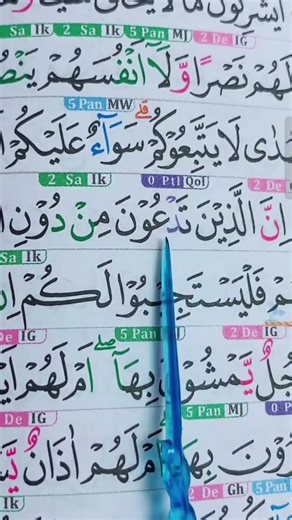 ايشركون ما لا يخلق شيئا
Sa Ik 2 Sa Ik 5 Pan MJ 2 De IG
لَهُمْ نَصْرًا وَّلَآ اَنْفُسَهُمْ يَنْصُ
5 Pan MW
هُدٰى لَا يَتَّبِعُوْكُمْ سَوَآءٌ عَلَيْكُمْ
2 Sa Ik 0 Ptl Qol 2 De
اِنَّ الَّذِيْنَ تَدْعُوْنَ مِنْ دُوْنِ
Sa Ik
فَلْيَسْتَجِيْبُوْا لَكُمْ اِنْ
De IG 5 Pan 2 De IG
جُلٌ يَّمْشُوْنَ بِهَآ ۖ اَمْ لَهُمْ اَيْ
De IG 5 Pan MJ 0 P
رُوْنَ بِهَآ اَمْ لَهُمْ اٰذَانٌ يَّسْ
Ik 2 De Gh 5 Pan